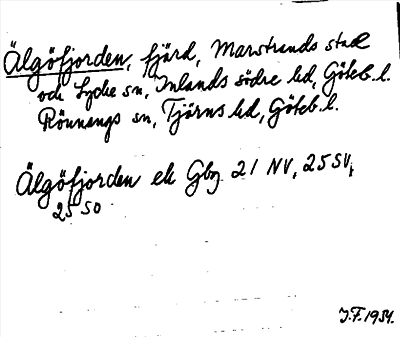 Älgöfjorden, fjärd, Marstrands stad
och Lycke sn, Inlands södre hd, Göteb. l.
Rönnangs sn, Tjörns hd, Göteb. l.
Älgöfjorden ek Gbg 21 NV, 25 SV,
25 SO
J.F. 1934.